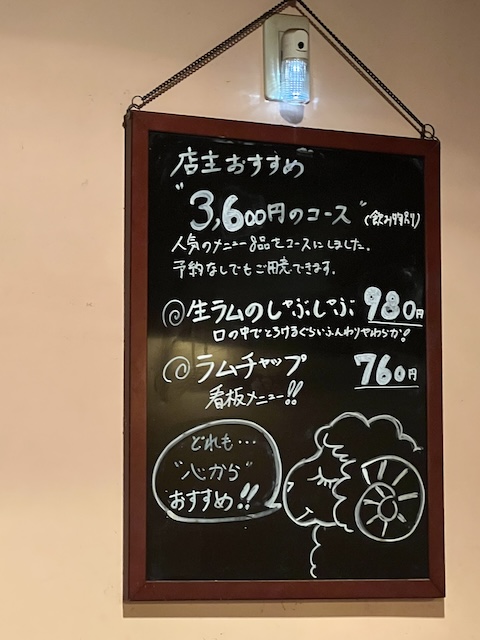 店主おすすめ
"3,600円のコース" (飲み物別)
人気のメニュー8品をコースにしました。
予約なしでもご用意できます。
生ラムのしゃぶしゃぶ 980円
口の中でとろけるぐらいふんわりやわらか!
ラムチャップ 760円
看板メニュー!!
どれも…
"心から"
おすすめ!!